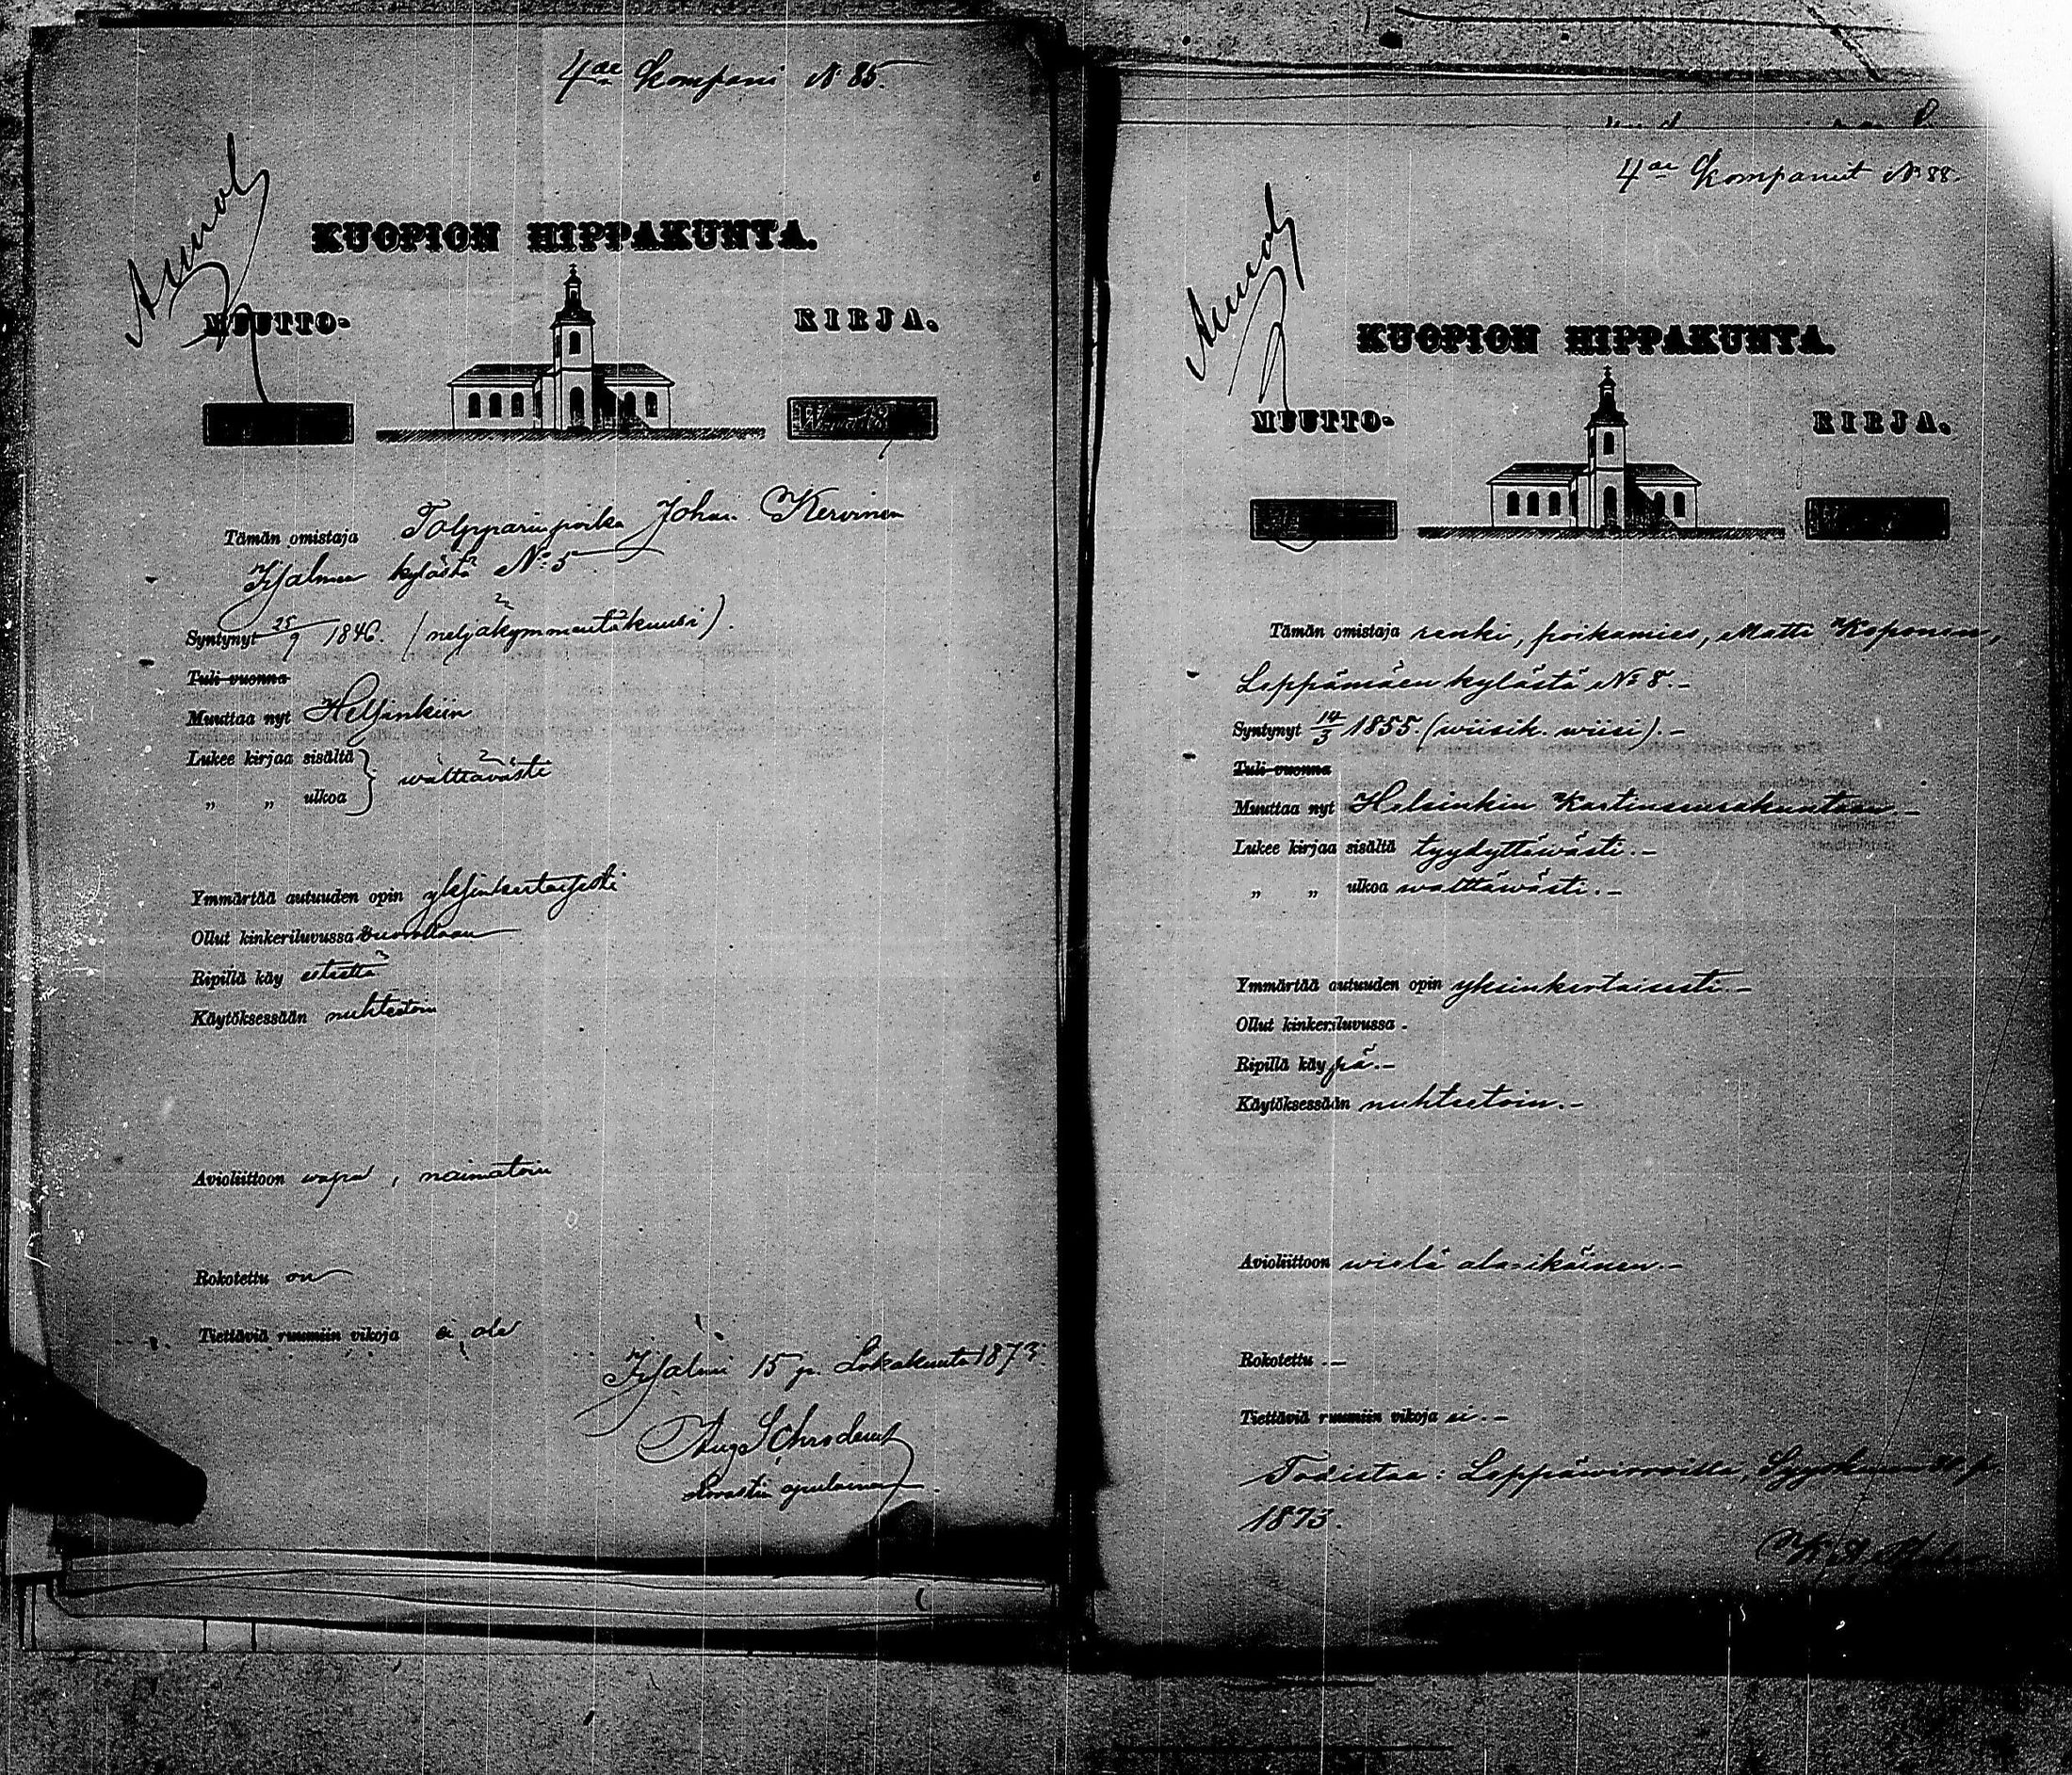 4de Kompani No 85.
KUOPION HIPPAKUNTA.
MUUTTO- KIRJA.
Tämän omistaja Tolpparinpoika Johan Kervinen
Iisalmen kylästä No 5
Syntynyt 25/9 1846. (neljäkymmentäkuusi).
Tuli vuonna
Muuttaa nyt Helsinkiin
Lukee kirjaa sisältä
„ „ ulkoa } wälttävästi
Ymmärtää autuuden opin yksinkertaisesti
Ollut kinkeriluvussa vuorollaan
Ripillä käy esteettä
Käytöksessään nuhteetoin
Avioliittoon wapa , naimatoin
Rokotettu on
Tiettäviä ruumiin vikoja ei ole
Iisalmi 15 p. Lokakuuta 1873.
Aug Schroderus
Rovastin apulainen
4de Kompaniet No 88.
KUOPION HIPPAKUNTA.
MUUTTO- KIRJA.
Tämän omistaja renki, poikamies, Matti Koponen,
Leppämäen kylästä No 8.-
Syntynyt 14/3 1855. (wiisik. wiisi).-
Tuli vuonna
Muuttaa nyt Helsinkin Kaartinseurakuntaan.-
Lukee kirjaa sisältä tyydyttäwästi.-
„ „ ulkoa wälttäwästi.-
Ymmärtää autuuden opin yksinkertaisesti.-
Ollut kinkeriluvussa .
Ripillä käypä.-
Käytöksessään nuhteetoin.-
Avioliittoon wielä ala-ikäinen.-
Rokotettu .-
Tiettäviä ruumiin vikoja ei.-
Todistaa: Leppäwirroilla, Syyskuun p.
1873.